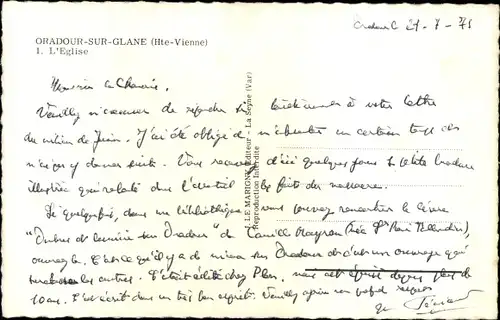 Oradour 21-7-71
ORADOUR-SUR-GLANE (Hte-Vienne)
1. L'Eglise
Monsieur le Chanoine.
Veuillez m'excuser de répondre si tardivement à votre lettre
du milieu de Juin. J'ai été obligé de m'absenter un certain temps
et n'ai pu y donner suite. Vous recevrez d'ici quelques jours la
illustrée qui relate dans l'essentiel les faits du massacre.
Si quelquefois, dans une bibliothèque vous pouvez rencontrer le livre
"Ombres et lumière sur Oradour" de Camille Mayran (née
ouvrage. C'est ce qu'il y a de mieux sur Oradour et c'est un ouvrage qui
les autres. C'était édité chez Plon, mais est épuisé depuis plus de
10 ans. C'est écrit dans un très bon esprit. Veuillez agréer
J. LE MARIGNY, Editeur - La Seyne (Var)
Reproduction Interdite